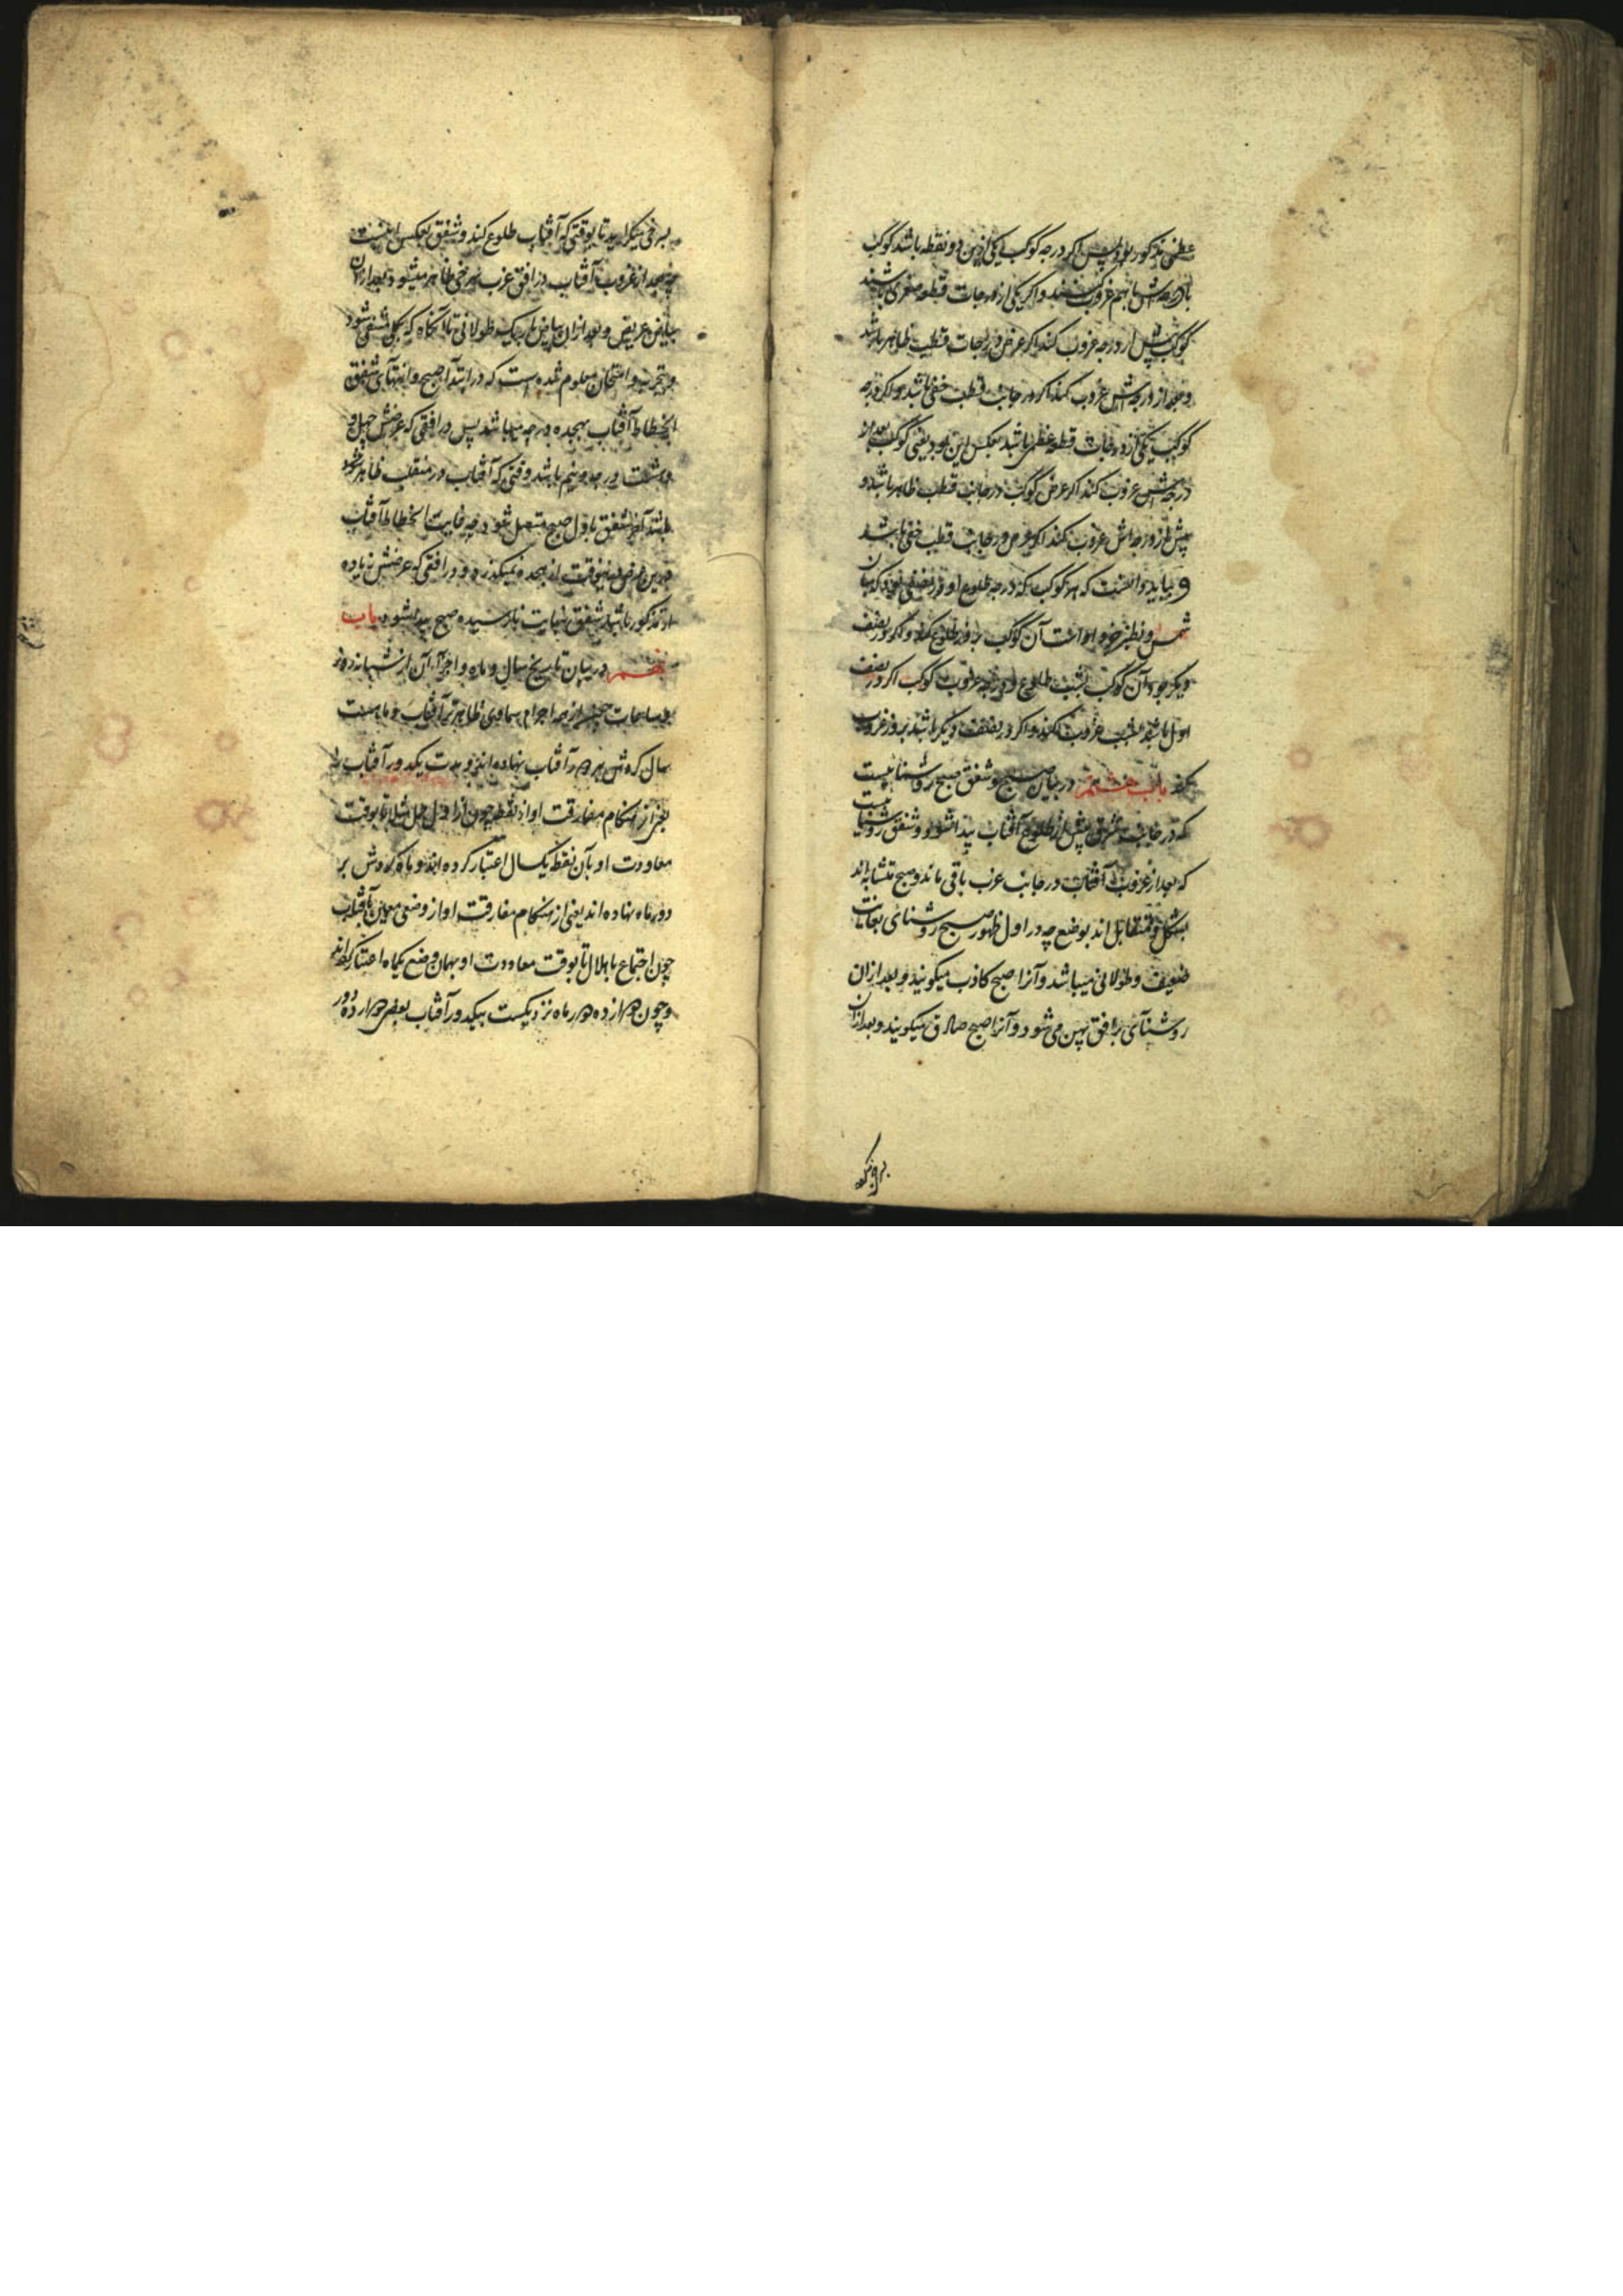 عظمی مذکور بود پس اگر درجه کوکب یکی ازین دو نقطه باشد کوکب
با درجه‌اش باهم غروب کنند و اگر یکی از درجات قطعه صغری باشد
کوکب پیش از درجه غروب کند اگر عرض در جانب قطب ظاهر باشد
و بعد از درجه‌اش غروب کند اگر در جانب قطب خفی باشد و اگر درجه
کوکب یکی از درجات قطعه عظمی باشد بعکس این بود یعنی کوکب بعد از
درجه‌اش غروب کند اگر عرض کوکب در جانب قطب ظاهر باشد و
پیش از درجه‌اش غروب کند اگر عرض در جانب قطب خفی باشد
و بباید دانست که هر کوکب که درجه طلوع او در نصفی بود که میان
شمس و نظیر جزو او است آن کوکب بروز طلوع کند و اگر در نصف
دیگر بود آن کوکب بشب طلوع و درجه غروب کوکب اگر در نصف
اول باشد بشب غروب کند و اگر در نصف دیگر باشد بروز غروب
کند باب هشتم در بیان صبح و شفق صبح روشنائیست
که در جانب شرق پیش از طلوع آفتاب پیدا شود و شفق روشنائیست
که بعد از غروب آفتاب در جانب غرب باقی ماند و صبح متشابه‌اند
بشکل و متقابل اند بوضع چه در اول ظهور صبح روشنای بغایت
ضعیف و طولانی میباشد و آنرا صبح کاذب میگویند و بعد از ان
روشنآی بر افق پهن می‌شود و آنرا صبح صادق میگویند و بعد از ان
بسرخی میگراید تا بوقتی که آفتاب طلوع کند و شفق بعکس اینست
چه بعد از غروب آفتاب در افق غرب سرخی ظاهر میشود و بعد از ان
بیاض عریض و بعد از ان بیاض باریک طولانی تا آنگاه که بکلی منتفی شود
و بتجربه و امتحان معلوم شده است که در ابتدآ صبح و انتهای شفق
انحطاط آفتاب بهجده درجه میباشد پس در افقی که عرضش چهل و
هشت درجه و نیم باشد وقتی که آفتاب در منقلب ظاهر شود
باشد آخر شفق باول صبح متصل شود چه غایت انحطاط آفتاب
درین عرض درینوقت از هجده نمیگذرد و در افقی که عرضش زیاده
از مذکور باشد شفق بنهایت نارسیده صبح پیدا شود باب
نهم در بیان تاریخ سال و ماه و اجزآء آن از شبانه‌روز
و ساعات چون از همه اجرام سماوی ظاهرتر آفتاب و ماهست
سال گردش بر دور آفتاب نهاده‌اند و مدت یکدور آفتاب را
یعنی از هنگام مفارقت او از نقطه چون از اول حمل مثلا تا بوقت
معاودت او بآن نقطه یکسال اعتبار کرده اند و ماه گردش بر
دور ماه نهاده اند یعنی از هنگام مفارقت او از وضعی معین بآفتاب
چون اجتماع یا هلال تا بوقت معاودت او بهمان وضع یکماه اعتبار کرده‌اند
و چون دوازده دور ماه نزدیکست بیکدور آفتاب بعضی دوازده دور